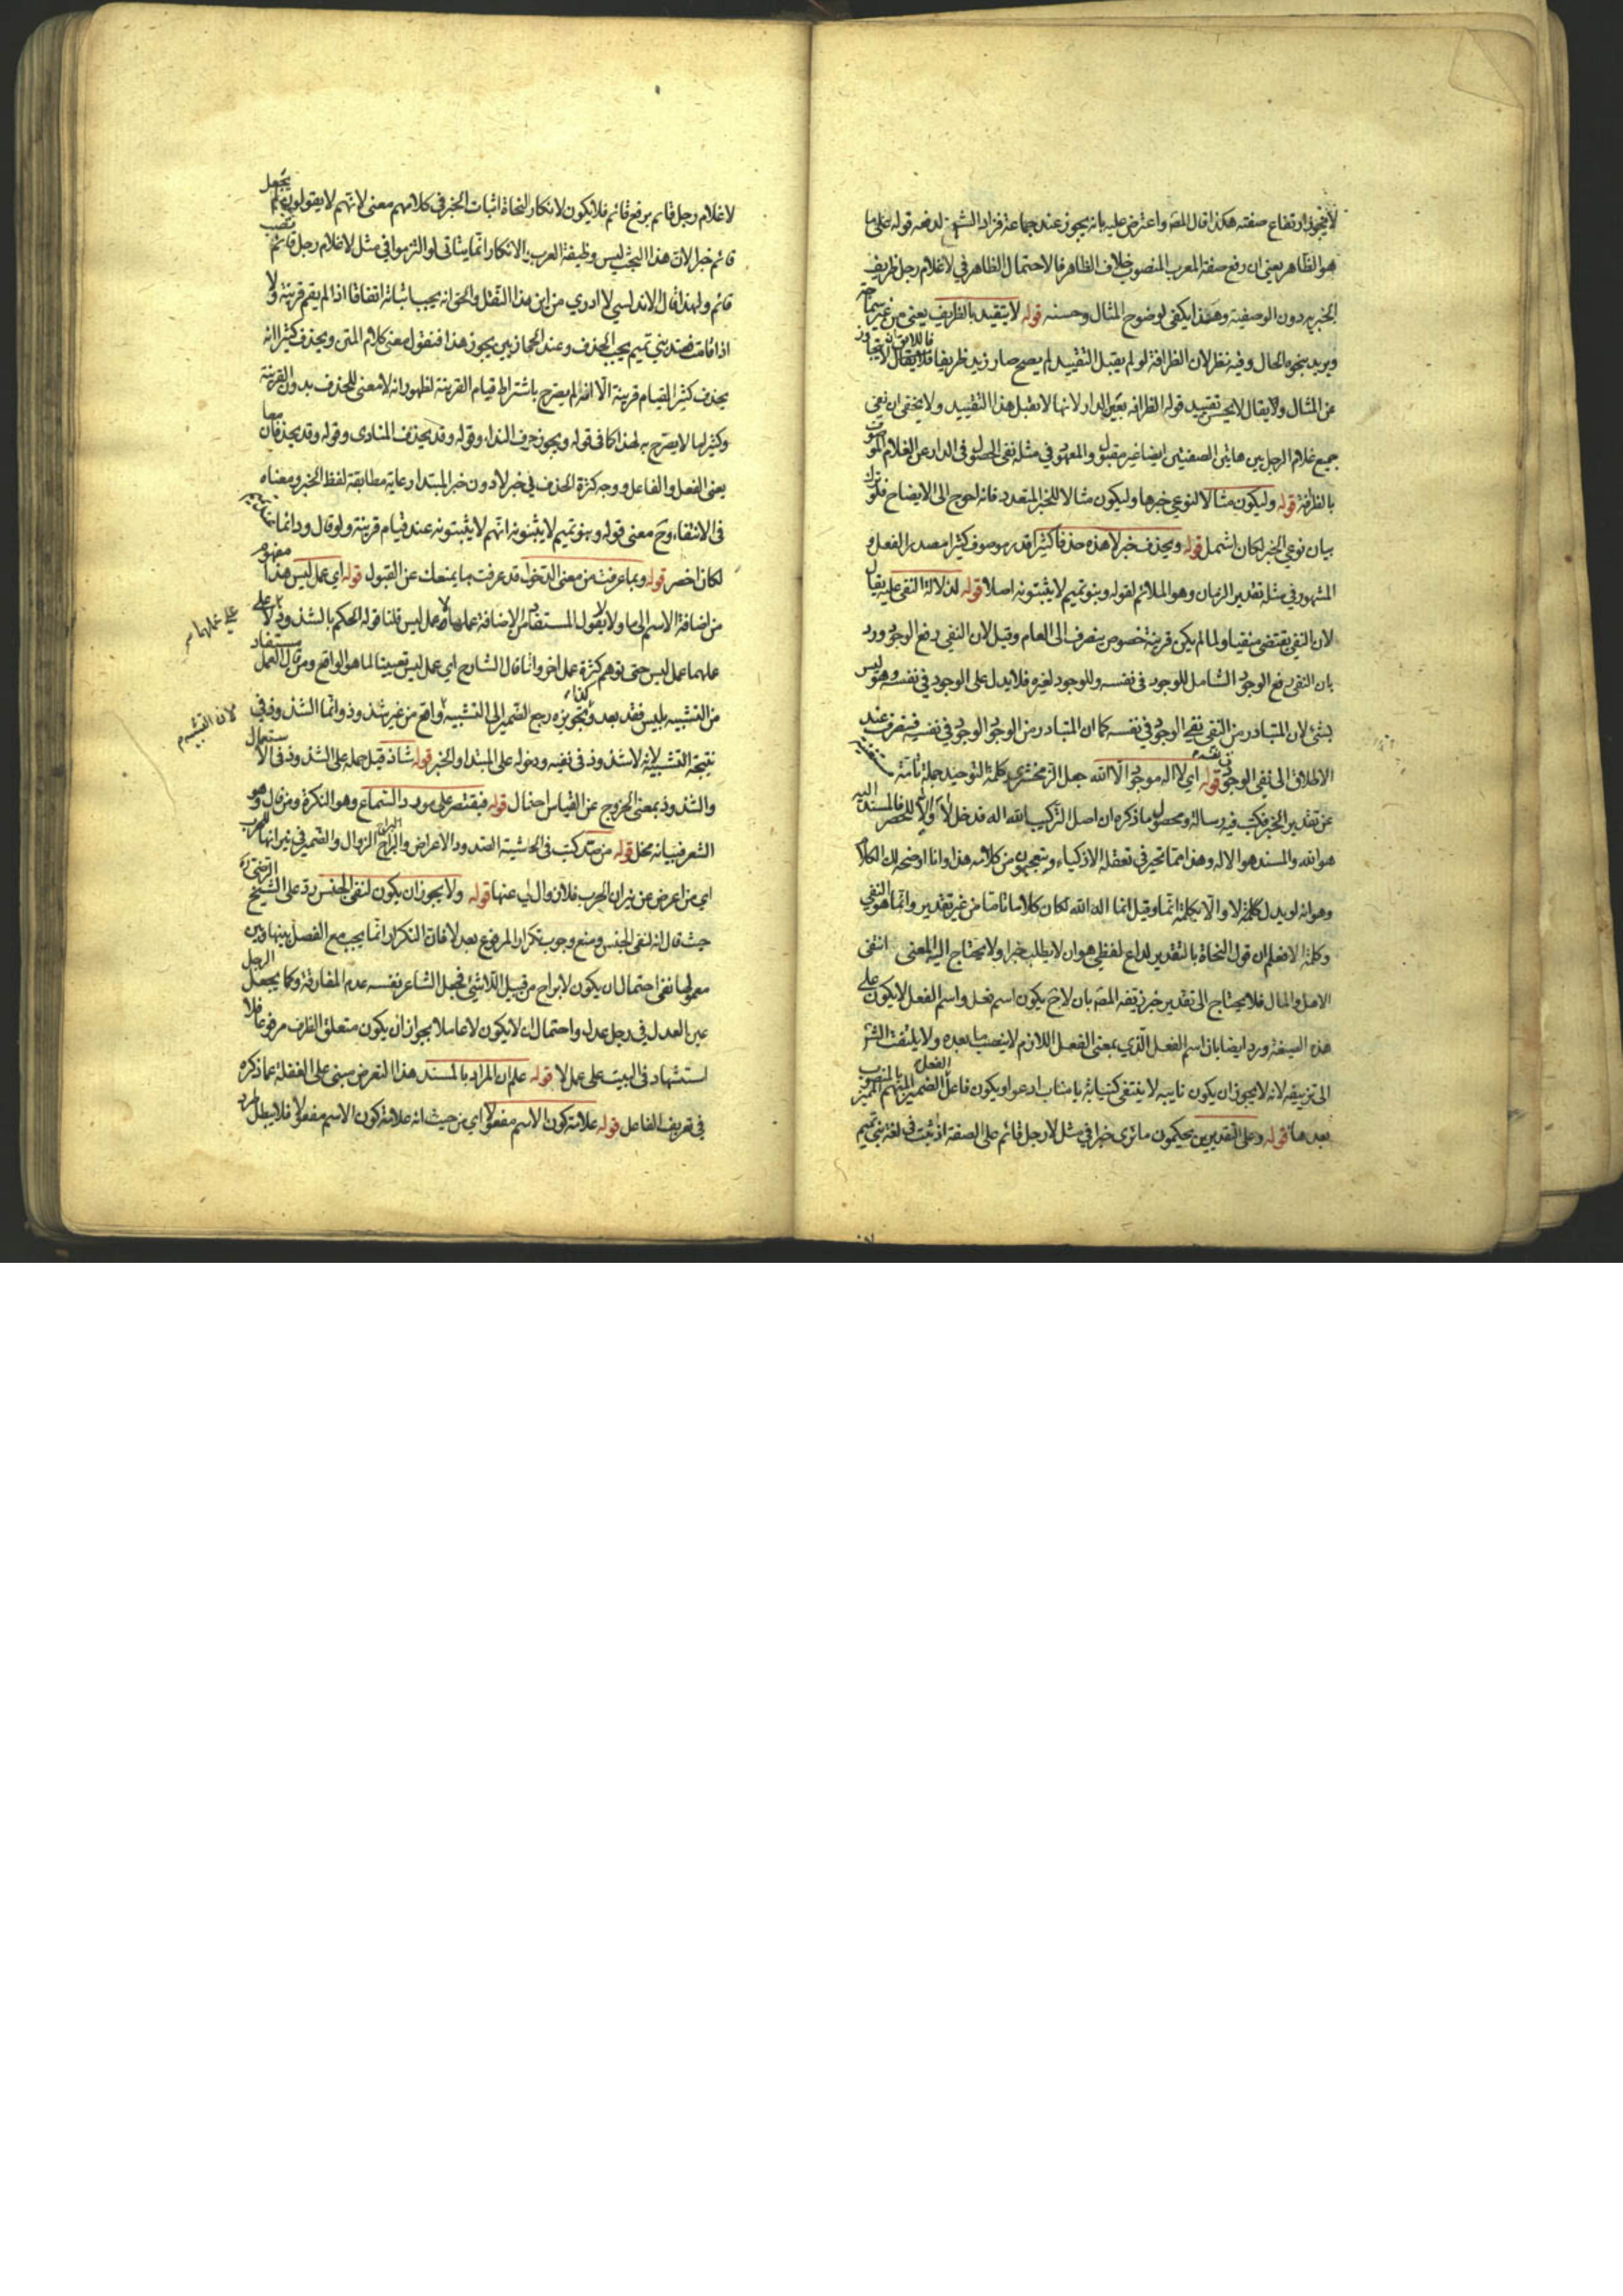 لا يجوز ارتفاع صفته هكذا قال المصه واعترض عليه بانه يجوز عند جماعة فزاد الشيخ لدفعه قوله على ما
هو الظاهر يعني ان رفع صفة المعرب المنصوب خلاف الظاهر فالاحتمال الظاهر في لا غلام رجل ظريف
الخبرية دون الوصفية وهذا يكفي لوضوح المثال وحسنه قوله لا يتقيد بالظريف يعني من غير
ويريد بنحوه الحال وفيه نظر لان الظرافة لو لم يقبل التقييد لم يصح صار زيد ظريفا
عن المثال ولا يقال لا يحسن تقييد قوله الظرافة بفي الدار لانها لا تقبل هذا التقييد ولا يخفى ان نفي
جميع غلام الرجل بين هاتين الصفتين ايضا غير مقبول والمعهود في مثله نفي الحصول في الدار عن الغلام
بالظرافة قوله وليكون مثالا لنوعي خبرها وليكون مثالا للخبر المتعدد فانه احوج الى الايضاح فلو ترك
بيان نوعي الخبر لكان اشمل قوله ويحذف خبر لا هذه حذفا كثيرا قدر موصوف كثيرا مصدر الفعل و
المشهور في مثله تقدير الزمان وهو الملائم لقوله وبنو تميم لا يثبتونه اصلا قوله لدلالة النفي عليه يقال
لان النفي يقتضي منفيا ولما لم يكن قرينة خصوص ينصرف الى العام وقيل لان النفي رفع الوجود ورد
بان النفي رفع الوجود الشامل للوجود في نفسه وللوجود لغيره فلا يدل على الوجود في نفسه وهو ليس
بشئ لان المتبادر من النفي نفي الوجود في نفسه كما ان المتبادر من الوجود الوجود في نفسه فينصرف عند
الاطلاق الى نفي الوجود في نفسه قوله اي لا اله موجود الا الله جعل الزمخشري كلمة التوحيد جملة تامة
عن تقدير الخبر فكتب فيه رسالة ومحصول ما ذكره ان اصل التركيب الله اله فدخل لا والا للحصر فالمسند اليه
هو الله والمسند هو الاله وهذا مما تحير في تعقله الاذكياء ويتعجبون من كلامه هذا وانا اوضحه لك اكمل
وهو انه لو بدل كلمة لا والا بكلمة انما وقيل انما اله الله لكان كلاما تاما من غير تقدير وانما هو النفي
وكلمة الا فعلم ان قول النحاة بالتقدير لداع لفظي هو ان لا يطلب خبرا ولا يحتاج اليه المعنى انتفى
الاهل والمال فلا يحتاج الى تقدير خبر زيفه المصه بان لا ح يكون اسم فعل واسم الفعل لا يكون على
هذه الصيغة ورد ايضا بان اسم الفعل الذي بمعنى الفعل اللازم لا ينصب ما بعده ولا يلتفت الشر
الى تزييفه لانه لا يجوز ان يكون نايبه لا ينتفي كنيابة يا مناب ادعو او يكون فاعل الفعل الضمير المبهم المميز بالمنصوب
بعدها قوله وعلى التقديرين يحكمون ما ترى خبرا في مثل لا رجل قائم على الصفة اذ ثبت في لغة بني تميم
لا غلام رجل قائم برفع قائم فلا يكون لانكار النحاة اثبات الخبر في كلامهم معنى لانهم لا يقولون يجعل
قائم خبرا لان هذا البحث ليس وظيفة العرب والانكار انما يتاتى لو التزموا في مثل لا غلام رجل قائم نصب
قائم ولهذا قال الاندلسي لا ادري من اين هذا النقل والحق انه يجب اثباته اتفاقا اذا لم يقم قرينة ولا
اذا قامت فعند بني تميم يجب الحذف وعند الحجازيين يجوز هذا فنقول معنى كلام المتن ويحذف كثيرا انه
يحذف كثيرا لقيام قرينة الا انه لم يصرح باشتراط قيام القرينة لظهور انه لا معنى للحذف بدون القرينة
وكثيرا ما لا يصرح به لهذا كما في قوله ويجوز حرف النداء وقوله وقد يحذف المنادى وقوله وقد يحذفان معا
يعني الفعل والفاعل ووجه كثرة الحذف في خبر لا دون خبر المبتدا رعاية مطابقة لفظ الخبر ومعناه
في الانتفاء وح معنى قوله وبنو تميم لا يثبتونه انهم لا يثبتونه عند قيام قرينة ولو قال ودائما
لكان اخصر قوله وبما عرفت من معنى الدخول قد عرفت ما يمنعك عن القبول قوله اي عمل ليس هذا مفهوم
من اضافة الاسم الى ما ولا
عملهما عمل ليس حتى توهم كثرة عمل اخر وانما قال الشارح اي عمل ليس تعيينا لما هو الواقع ومن قال العمل مستفاد
من التشبيه بليس فقد بعد وتجويزه رجع الضمير الى التشبيه واقع من غير شذوذ وانما الشذوذ في
نتيجة التشبيه لا شذوذ في نفسه ودخوله على المبتدا والخبر قوله شاذ قيل حمله على الشذوذ في الاستعمال
والشذوذ بمعنى الخروج عن القياس احتمال قوله فيقتصر على مورد السماع وهو النكرة ومن قال وهو
الشعر فبيانه مخل قوله من صد كتب في الحاشية الصدود الاعراض والبراح الزوال والضمير في نيرانها للحرب
اي من اعرض عن نيران الحرب فلان وال لي عنها قوله ولا يجوز ان يكون لنفي الجنس رد على الشيخ الرضي
حيث قال انه لنفي الجنس ومنع وجوب تكرار المرفوع بعد لا فان التكرار انما يجب مع الفصل بينها وبين
معمولها نفي احتمال ان يكون لا براح من قبيل اللاشئ فجعل الشاعر نفسه عدم المفارقة وكما يجعل الرجل
عين العدل في رجل عدل واحتمال ان لا يكون لا عاملا بجواز ان يكون متعلق الظرف مرفوعا فلا
استشهاد في البيت على عمل لا قوله علم ان المراد بالمسند هذا التعرض مبني على الغفلة عما ذكره
في تعريف الفاعل قوله علامة كون الاسم مفعولا اي من حيث انه علامة كون الاسم مفعولا فلا يبطل
لان التشبيه